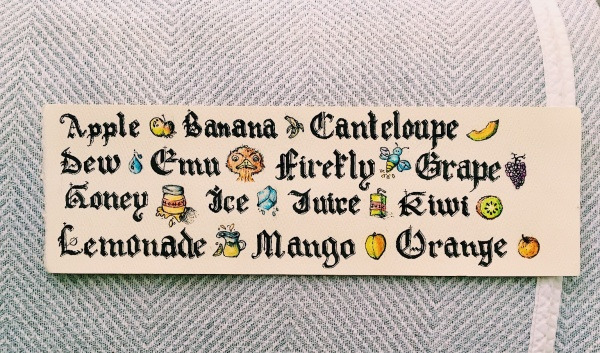 Apple Banana Canteloupe
Dew Emu Firefly Grape
Honey Ice Juice Kiwi
Lemonade Mango Orange